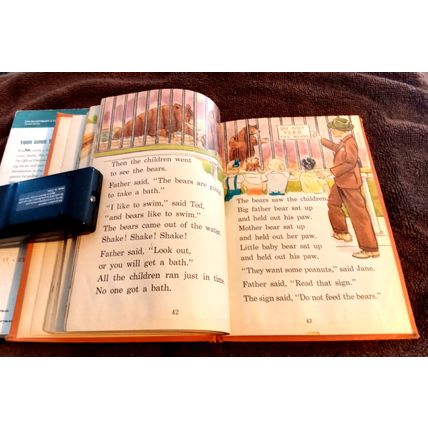 Then the children went
to see the bears.
Father said, "The bears are going
to take a bath."
"I like to swim," said Ted,
"and bears like to swim."
The bears came out of the water.
Shake! Shake! Shake!
Father said, "Look out,
or you will get a bath."
All the children ran just in time.
No one got a bath.
42
DO NOT
FEED
THE BEARS
The bears saw the children.
Big father bear sat up
and held out his paw.
Mother bear sat up
and held out her paw.
Little baby bear sat up
and held out his paw.
"They want some peanuts," said Jane.
Father said, "Read that sign."
The sign said, "Do not feed the bears."
43